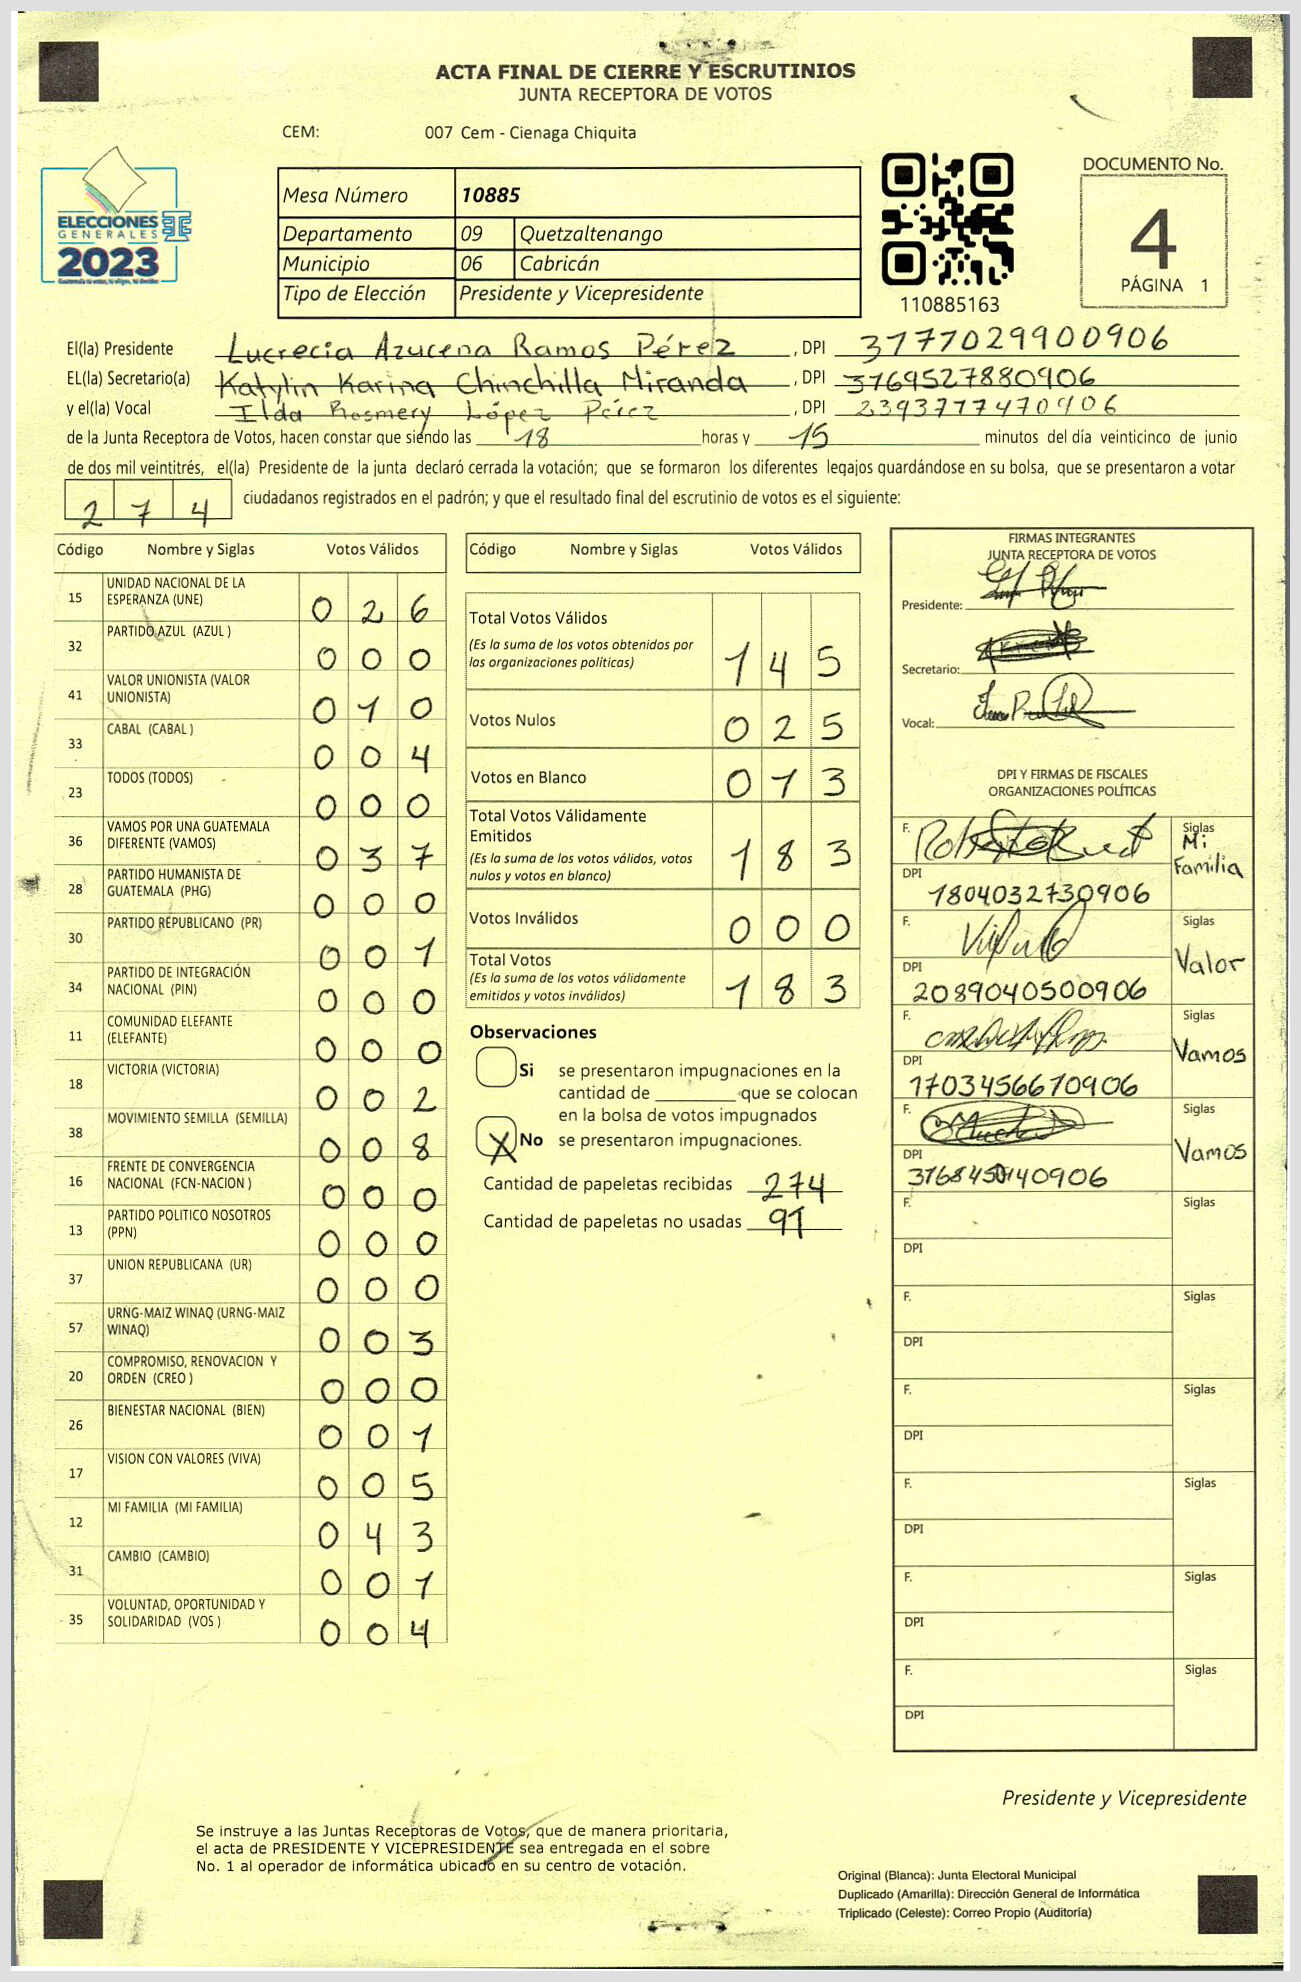 ACTA FINAL DE CIERRE Y ESCRUTINIOS
JUNTA RECEPTORA DE VOTOS
CEM: 007 Cem - Cienaga Chiquita
ELECCIONES
GENERALES
2023
Mesa Número 10885
Departamento 09 Quetzaltenango
Municipio 06 Cabricán
Tipo de Elección Presidente y Vicepresidente
110885163
DOCUMENTO No.
4
PÁGINA 1
El(la) Presidente Lucrecia Azucena Ramos Pérez, DPI 3177029900906
EL(la) Secretario(a) Katylin Karina Chinchilla Miranda, DPI 3769527880906
y el(la) Vocal Ilda Rosmery López Pérez, DPI 2393777470906
de la Junta Receptora de Votos, hacen constar que siendo las 18 horas y 15 minutos del día veinticinco de junio
de dos mil veintitrés, el(la) Presidente de la junta declaró cerrada la votación; que se formaron los diferentes legajos guardándose en su bolsa, que se presentaron a votar
274 ciudadanos registrados en el padrón; y que el resultado final del escrutinio de votos es el siguiente:
Código Nombre y Siglas Votos Válidos
15 UNIDAD NACIONAL DE LA ESPERANZA (UNE) 026
32 PARTIDO AZUL (AZUL ) 000
41 VALOR UNIONISTA (VALOR UNIONISTA) 010
33 CABAL (CABAL ) 004
23 TODOS (TODOS) 000
36 VAMOS POR UNA GUATEMALA DIFERENTE (VAMOS) 037
28 PARTIDO HUMANISTA DE GUATEMALA (PHG) 000
30 PARTIDO REPUBLICANO (PR) 001
34 PARTIDO DE INTEGRACIÓN NACIONAL (PIN) 000
11 COMUNIDAD ELEFANTE (ELEFANTE) 000
18 VICTORIA (VICTORIA) 002
38 MOVIMIENTO SEMILLA (SEMILLA) 008
16 FRENTE DE CONVERGENCIA NACIONAL (FCN-NACION ) 000
13 PARTIDO POLITICO NOSOTROS (PPN) 000
37 UNION REPUBLICANA (UR) 000
57 URNG-MAIZ WINAQ (URNG-MAIZ WINAQ) 003
20 COMPROMISO, RENOVACION Y ORDEN (CREO ) 000
26 BIENESTAR NACIONAL (BIEN) 001
17 VISION CON VALORES (VIVA) 005
12 MI FAMILIA (MI FAMILIA) 043
31 CAMBIO (CAMBIO) 001
35 VOLUNTAD, OPORTUNIDAD Y SOLIDARIDAD (VOS ) 004
Código Nombre y Siglas Votos Válidos
Total Votos Válidos
(Es la suma de los votos obtenidos por
las organizaciones políticas) 145
Votos Nulos 025
Votos en Blanco 013
Total Votos Válidamente
Emitidos
(Es la suma de los votos válidos, votos
nulos y votos en blanco) 183
Votos Inválidos 000
Total Votos
(Es la suma de los votos válidamente
emitidos y votos inválidos) 183
Observaciones
Si se presentaron impugnaciones en la
cantidad de ________ que se colocan
en la bolsa de votos impugnados
X No se presentaron impugnaciones.
Cantidad de papeletas recibidas 274
Cantidad de papeletas no usadas 91
FIRMAS INTEGRANTES
JUNTA RECEPTORA DE VOTOS
Presidente:
Secretario:
Vocal:
DPI Y FIRMAS DE FISCALES
ORGANIZACIONES POLÍTICAS
F. Siglas Mi Familia
DPI 1804032730906
F. Siglas Valor
DPI 2089040500906
F. Siglas Vamos
DPI 1703456670906
F. Siglas Vamos
DPI
F. Siglas
DPI
F. Siglas
DPI
F. Siglas
DPI
F. Siglas
DPI
F. Siglas
DPI
F. Siglas
DPI
Presidente y Vicepresidente
Se instruye a las Juntas Receptoras de Votos, que de manera prioritaria,
el acta de PRESIDENTE Y VICEPRESIDENTE sea entregada en el sobre
No. 1 al operador de informática ubicado en su centro de votación.
Original (Blanca): Junta Electoral Municipal
Duplicado (Amarilla): Dirección General de Informática
Triplicado (Celeste): Correo Propio (Auditoría)